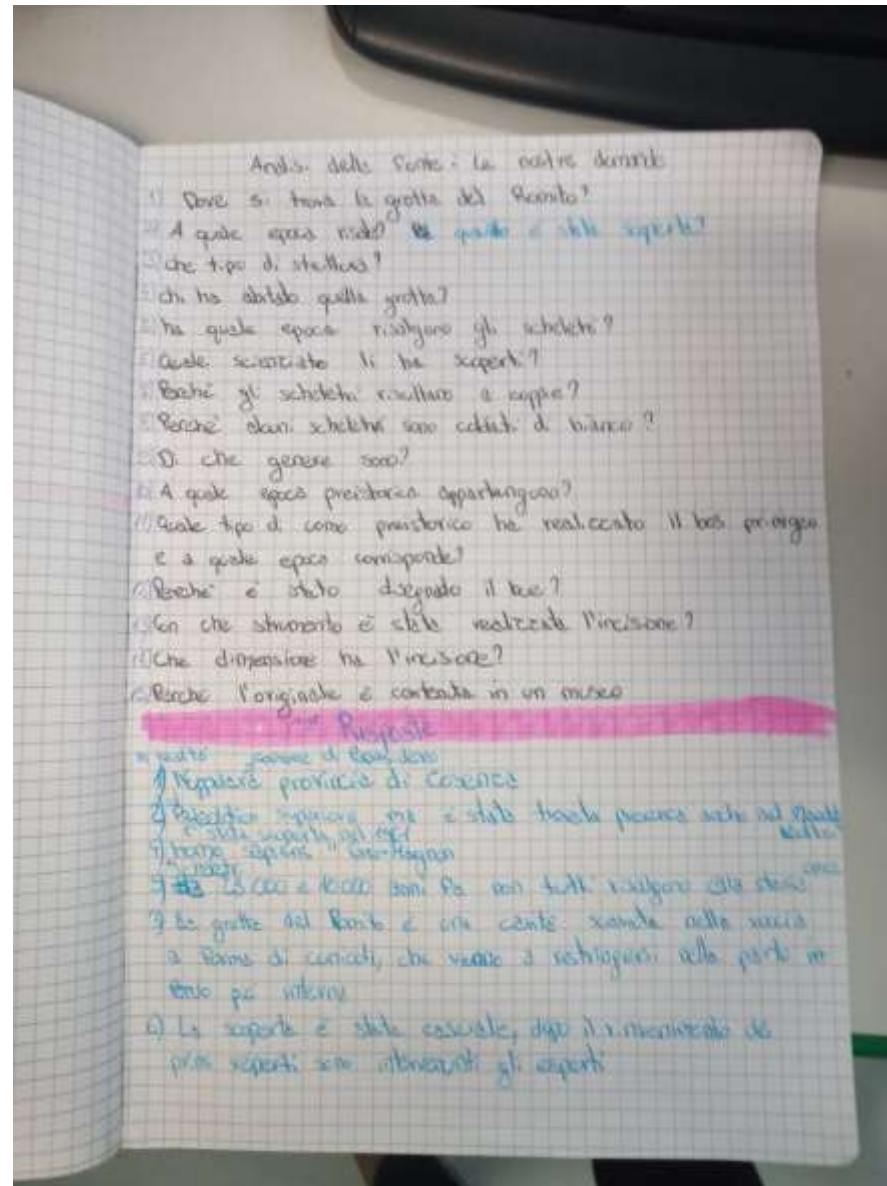 Analisi delle fonte: Le nostre domande
1) Dove si trova la grotta del Romito?
2) A quale epoca risale? quando è stata scoperta?
3) che tipo di struttura?
4) chi ha abitato quella grotta?
5) ha quale epoca risalgono gli scheletri?
6) Quale scienziato li ha scoperti?
7) Perché gli scheletri risultano a coppie?
8) Perché alcuni scheletri sono colorati di bianco?
9) Di che genere sono?
10) A quale epoca preistorica appartengono?
11) Quale tipo di uomo preistorico ha realizzato il bos primigeno
e a quale epoca corrisponde?
12) Perché è stato disegnato il bue?
13) Con che strumento è stata realizzata l'incisione?
14) Che dimensione ha l'incisione?
15) Perché l'originale è contenuta in un museo
Risposte
1) Papasidero provincia di Cosenza
2) Paleolitico superiore ma è stata trovata presenza anche nel
è stata scoperta nel
4) homo sapiens Cro-Magnon
5) 23 000 e 10 000 anni fa non tutti risalgono alla stessa
3) La grotta del Romito è una cavità scavata nella roccia
a forma di cunicoli, che vanno a restringersi nella parte
più interna
6) La scoperta è stata casuale, dopo il rinvenimento dei
primi reperti sono intervenuti gli esperti